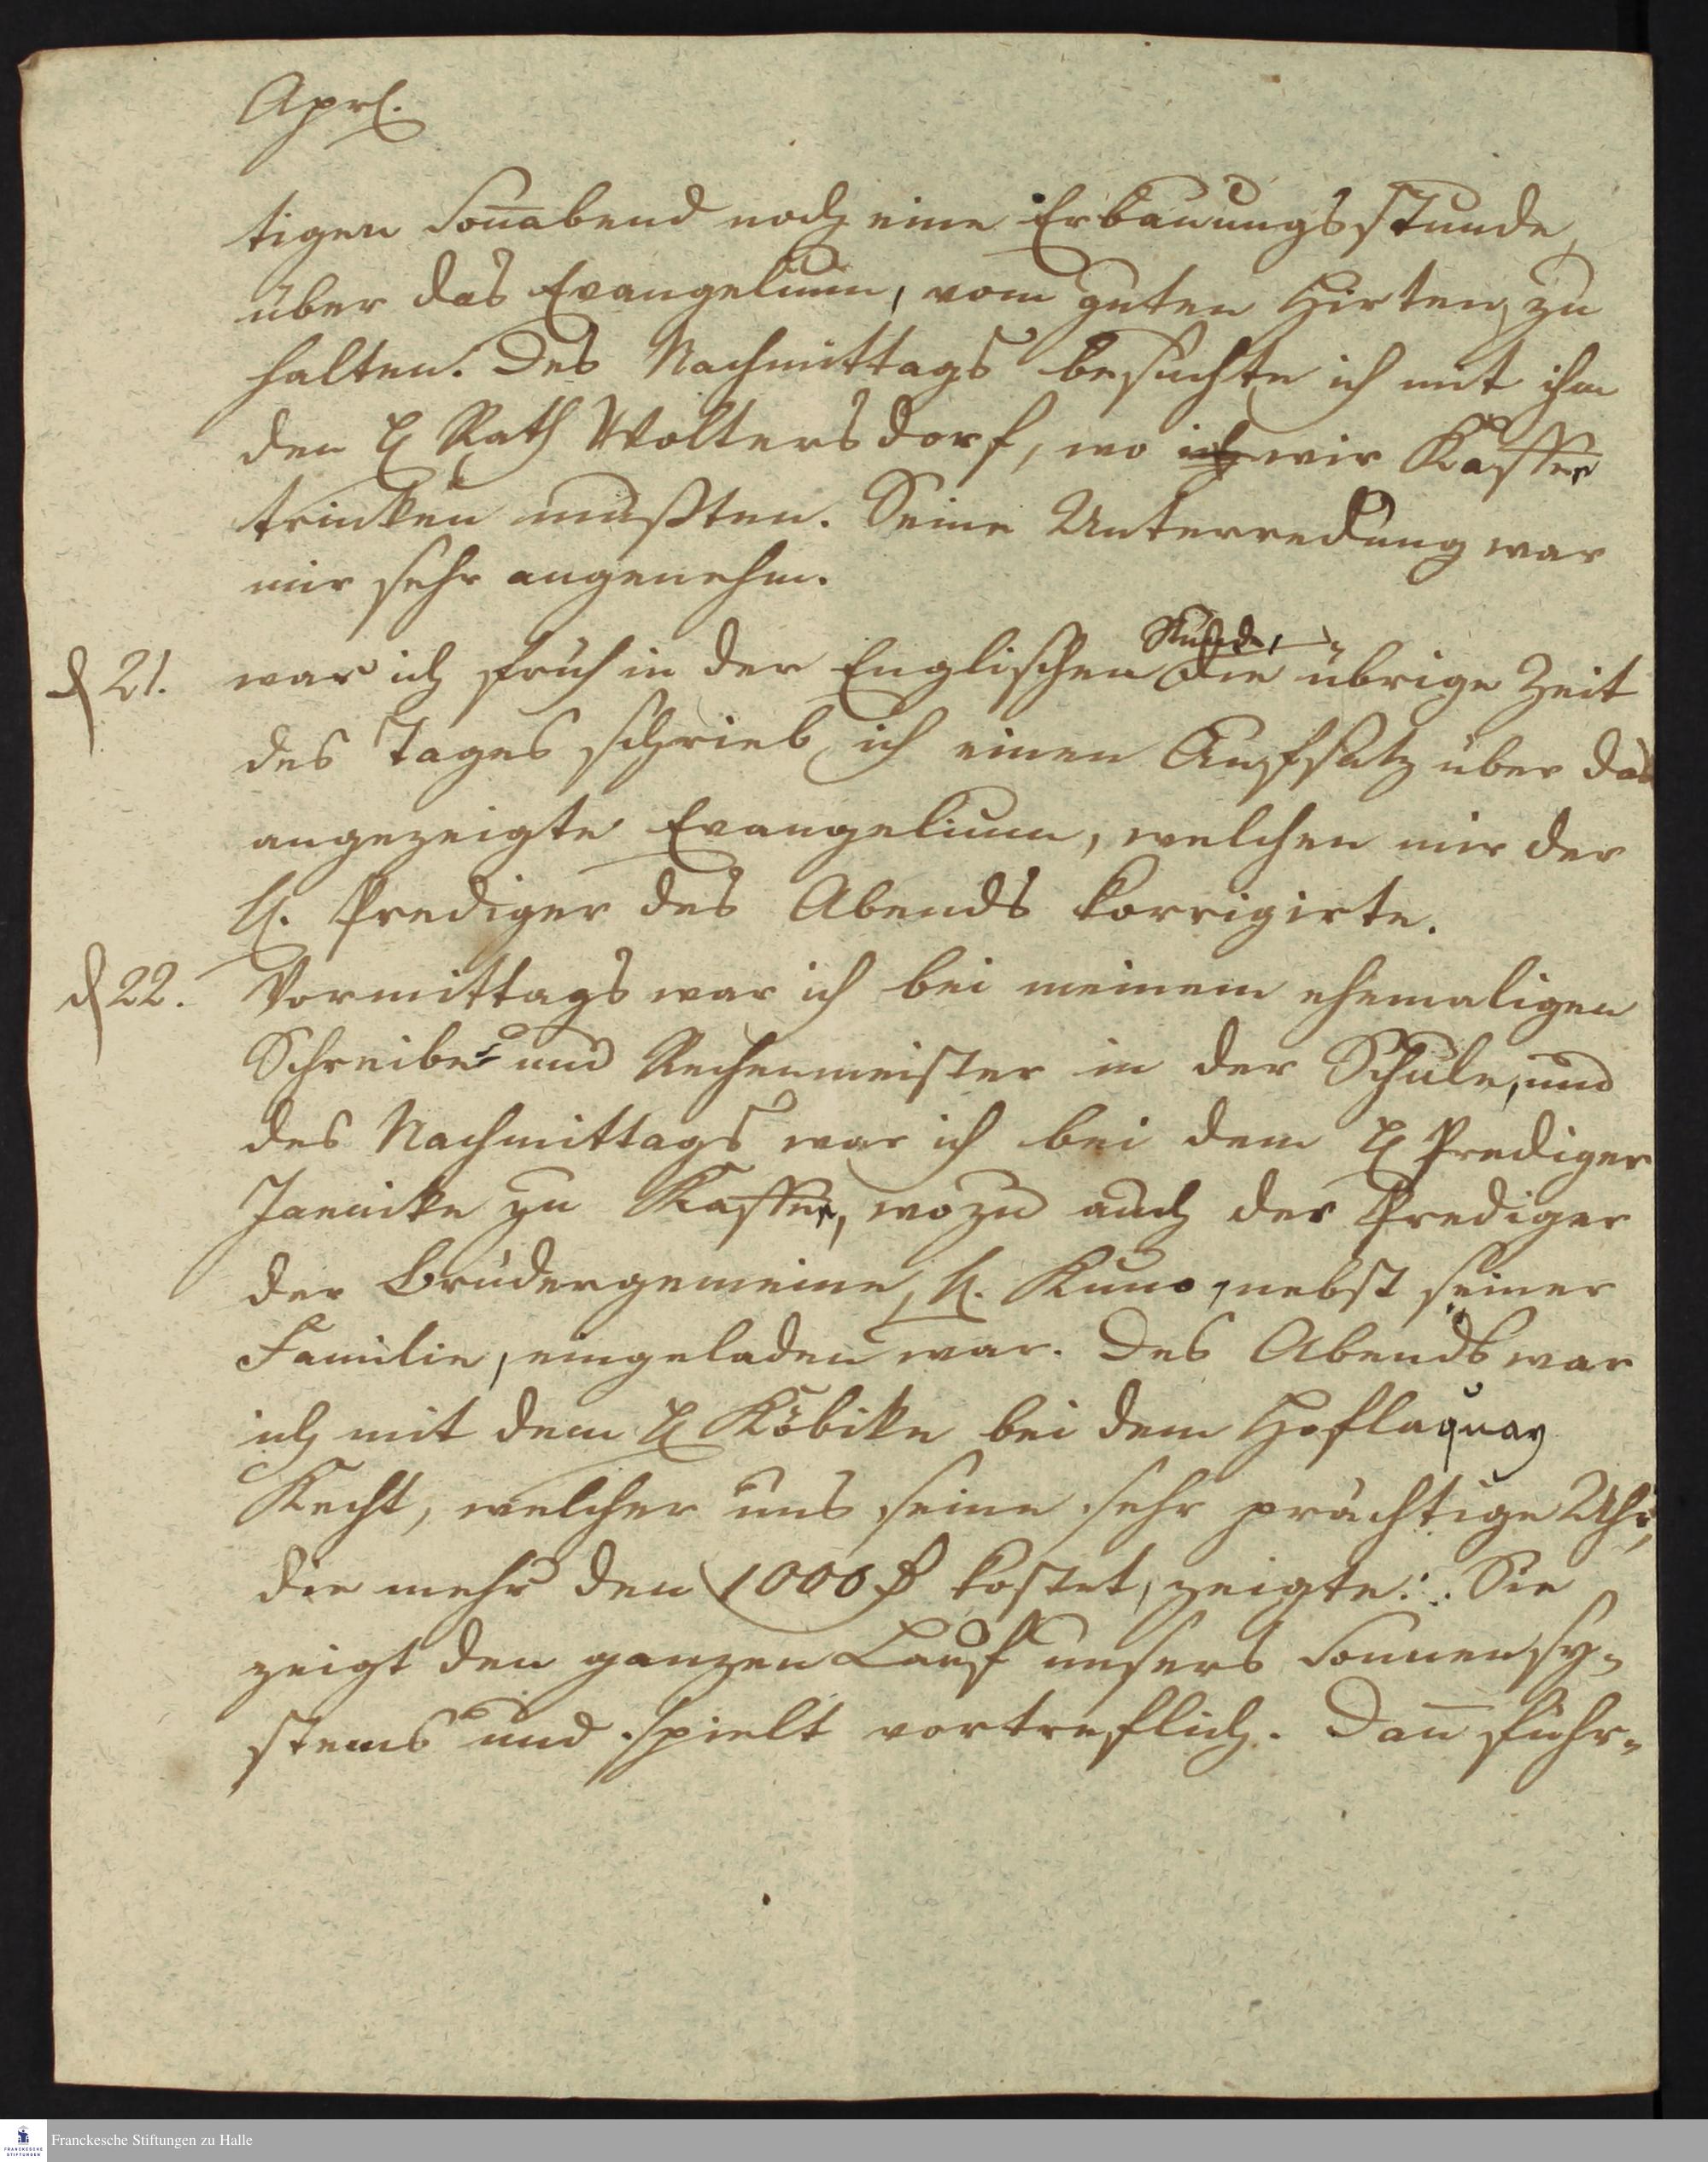 Aprl.
tigen Soñabend noch eine Erbauungsstunde,
über das Evangelium, vom guten Hirten, zu
halten. Des Nachmittags besuchte ich mit ihm
den H Rath Woltersdorf, wo ich wir Kaffee
trinken mußten. Seine Unterredung war
mir sehr angenehm.
Stunde,
d 21. war ich früh in der Englischen die übrige Zeit
des Tages schrieb ich einen Aufsatz über das
angezeigte Evangelium, welchen mir der
H. Prediger des Abends korrigirte.
d 22. Vormittags war ich bei meinem ehemaligen
Schreibe= und Rechenmeister in der Schule, und
des Nachmittags war ich bei dem H Prediger
Jaenicke zu Kaffee, wozu auch der Prediger
der Brüdergemeine, H. Kuno, nebst seiner
Familie, eingeladen war. Des Abends war
ich mit dem H Köbike bei dem Hoflaquay
Kecht, welcher uns seine sehr prächtige Uhr,
die mehr den 1000 kostet, zeigte. Sie
zeigt den ganzen Lauf unsers Sonnensy=
stems und spielt vortreflich. Dañ führ=
Franckesche Stiftungen zu Halle
FRANCKESCHE
STIFTUNGEN